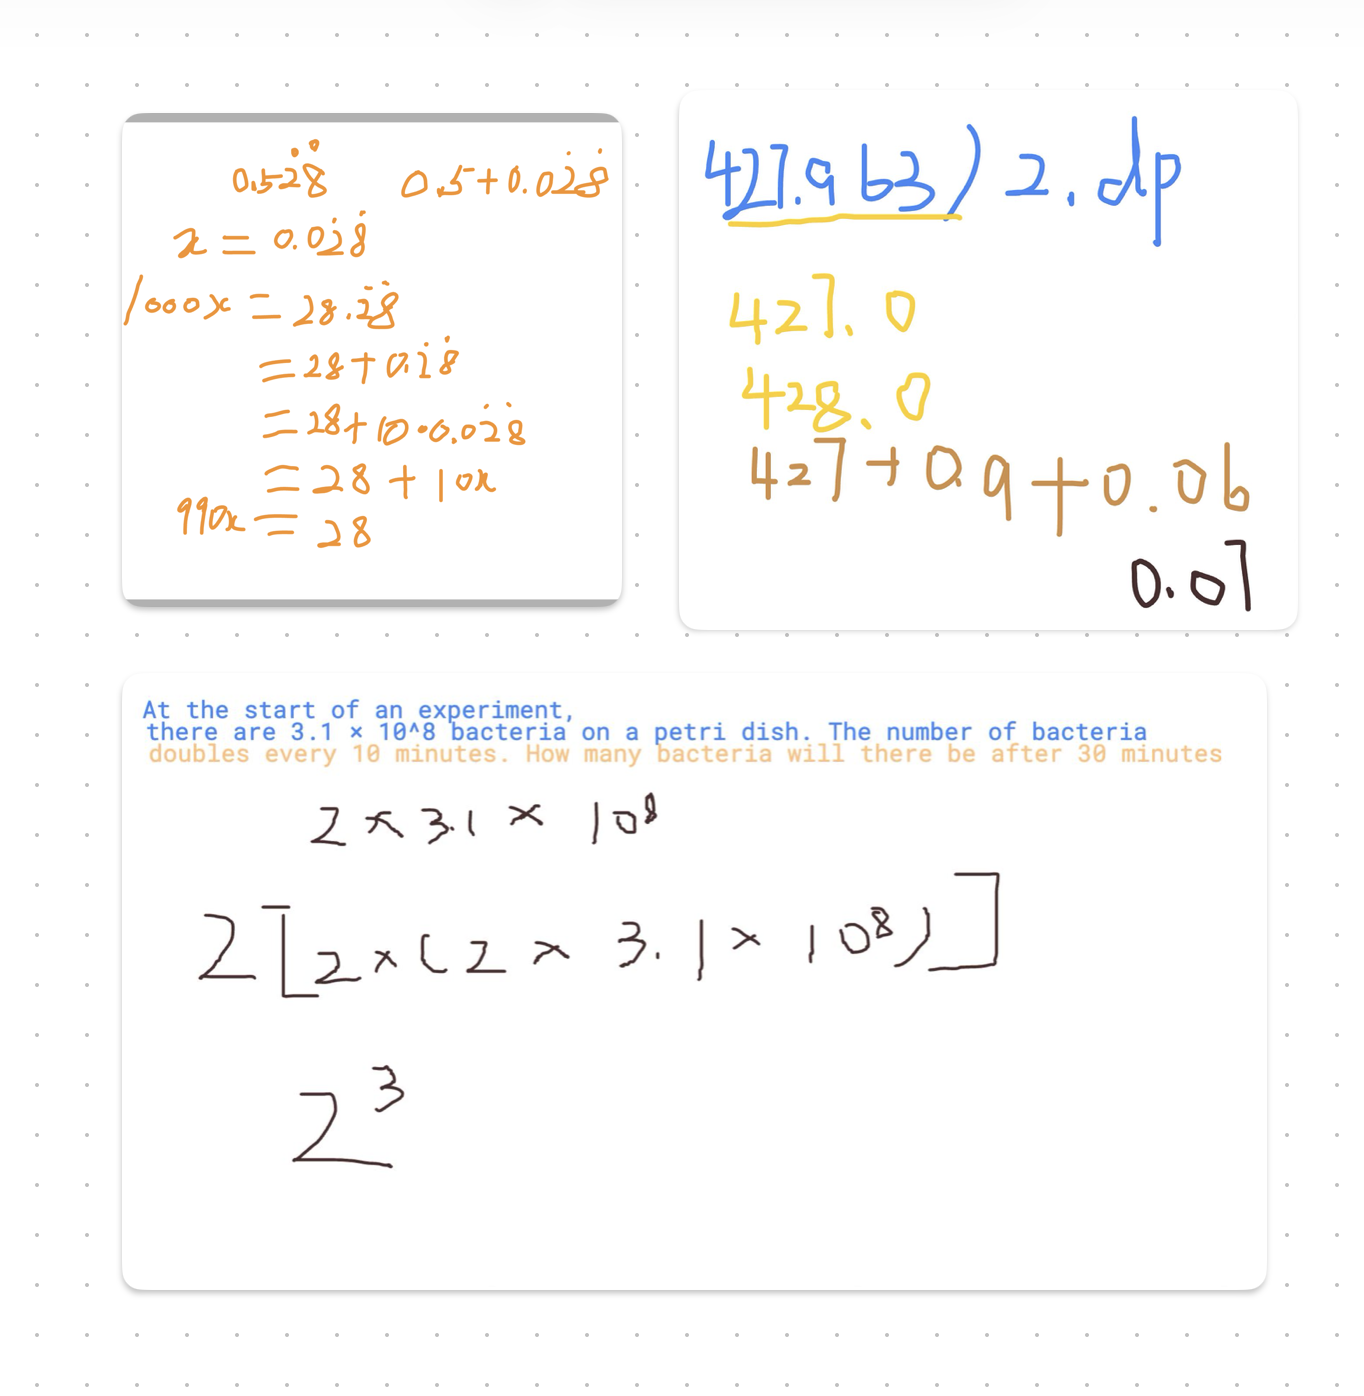 0.52̇8̇ 0.5+0.02̇8̇
x = 0.02̇8̇
1000x = 28.2̇8̇
= 28 + 0.2̇8̇
= 28 + 10·0.02̇8̇
= 28 + 10x
990x = 28
427.963) 2.dp
427.0
428.0
427 + 0.9 + 0.06
0.07
At the start of an experiment,
there are 3.1 × 10^8 bacteria on a petri dish. The number of bacteria
doubles every 10 minutes. How many bacteria will there be after 30 minutes
2 × 3.1 × 10⁸
2[2×(2 × 3.1 × 10⁸)]
2³